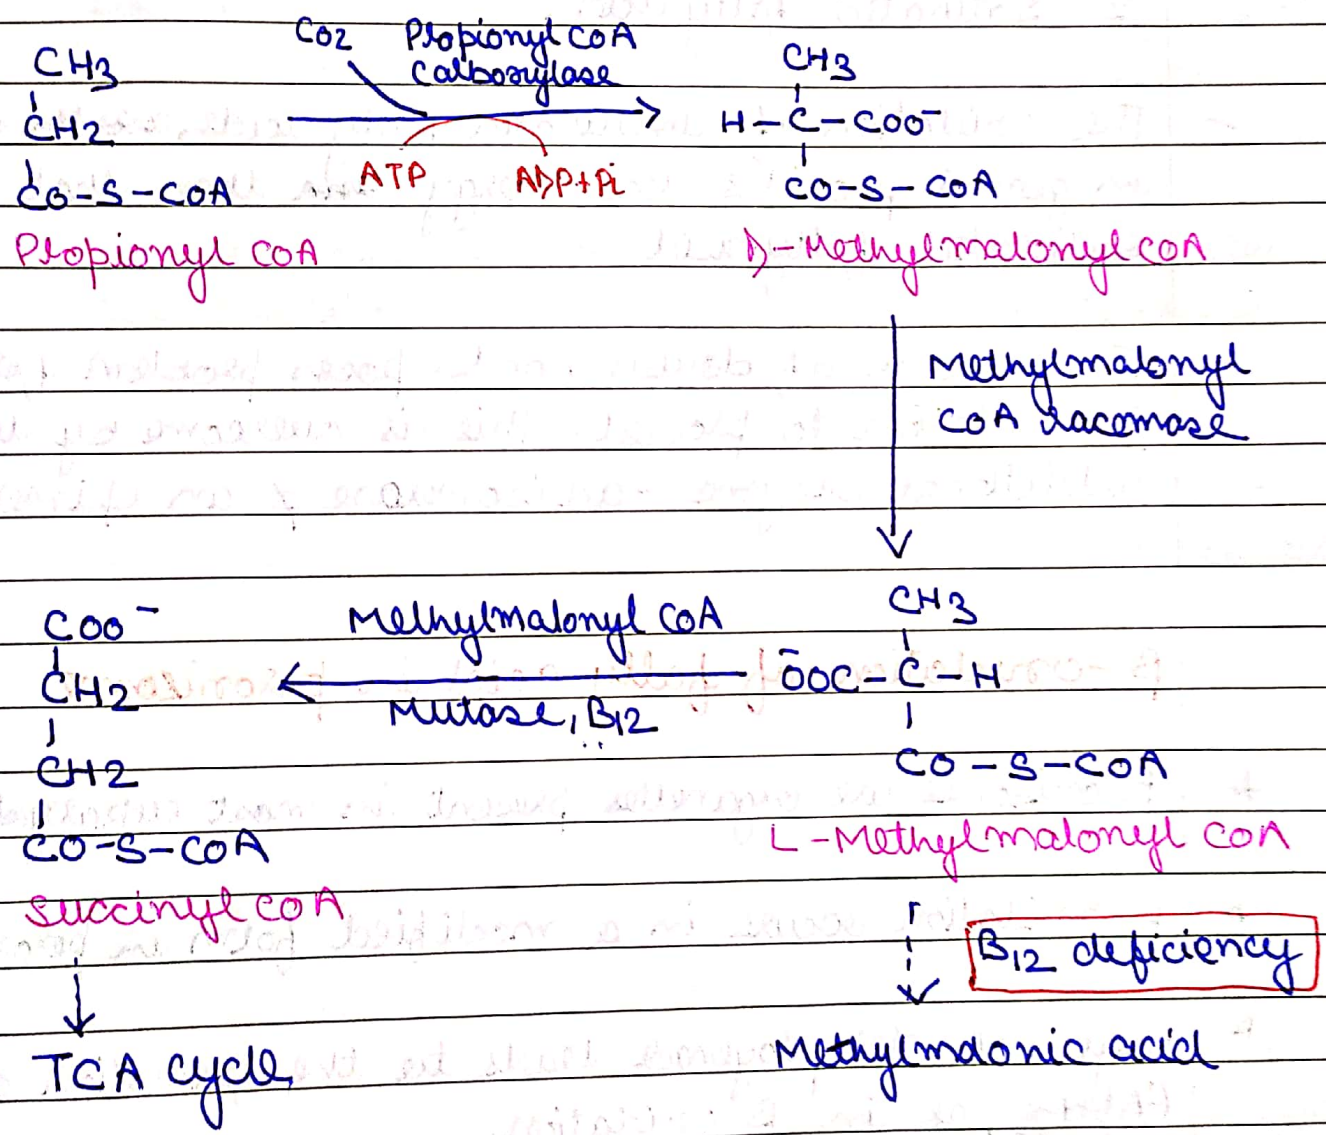 CO2 Propionyl CoA
Carboxylase
CH3
CH2
CO-S-CoA
ATP ADP+Pi
Propionyl CoA
CH3
H-C-COO⁻
CO-S-CoA
D-Methylmalonyl CoA
Methylmalonyl
CoA racemase
CH3
ŌOC-C-H
CO-S-CoA
L-Methylmalonyl CoA
Methylmalonyl CoA
Mutase, B12
COO⁻
CH2
CH2
CO-S-CoA
Succinyl CoA
TCA cycle
B12 deficiency
Methylmalonic acid